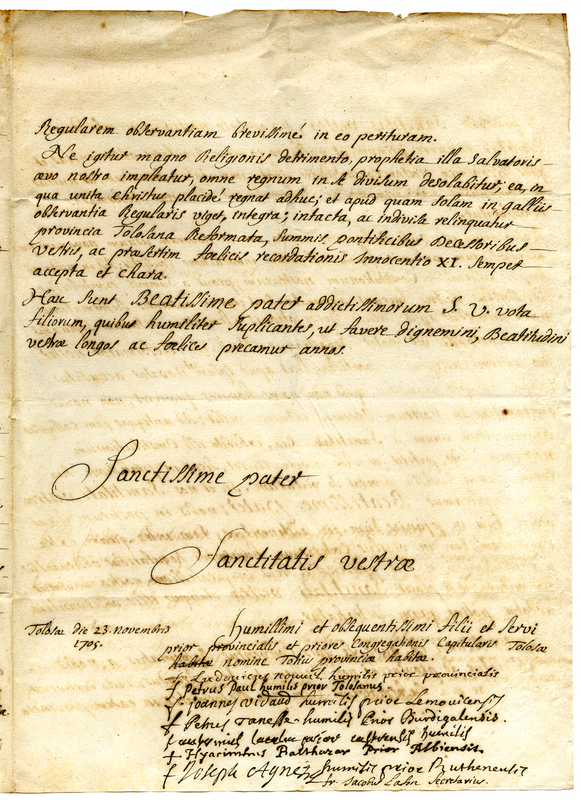 Regularem observantiam brevissimè in eo perituram.
Ne igitur magno Religionis detrimento, prophetia illa Salvatoris
ævo nostro impleatur, omne regnum in se divisum desolabitur, ea, in
qua unita Christus placidè regnat adhuc; et apud quam solam in galliis
observantia Regularis viget, integra, intacta, ac indivisa relinquatur
provincia Tolosana Reformata, Summis pontificibus Decessoribus
vestris, ac præsertim fœlicis recordationis Innocentio XI. Semper
accepta et chara.
Hæc Sunt Beatissime pater addictissimorum S. V. vota
filiorum, quibus humiliter Suplicantes, ut favere dignemini, Beatitudini
vestræ longos ac fœlices precamur annos.
Sanctissime pater
Sanctitatis vestræ
Tolosæ die 23. novembris
1705.
humillimi et obsequentissimi filii et Servi
prior provincialis et priores Congregationis Capitularis Tolosæ
habitæ nomine Totius provinciæ habitæ.
humilis prior provincialis
f Petrus Paul humilis prior Tolosanus
f joannes vidaud humilis prior Lemovicensis
f Petrus humilis Prior Burdigalensis.
f prior castrensis humilis
f Hyacinthus Balthazar Prior Albiensis
f Joseph Agnez humilis prior Ruthenensis
fr Jacobus Secretarius.